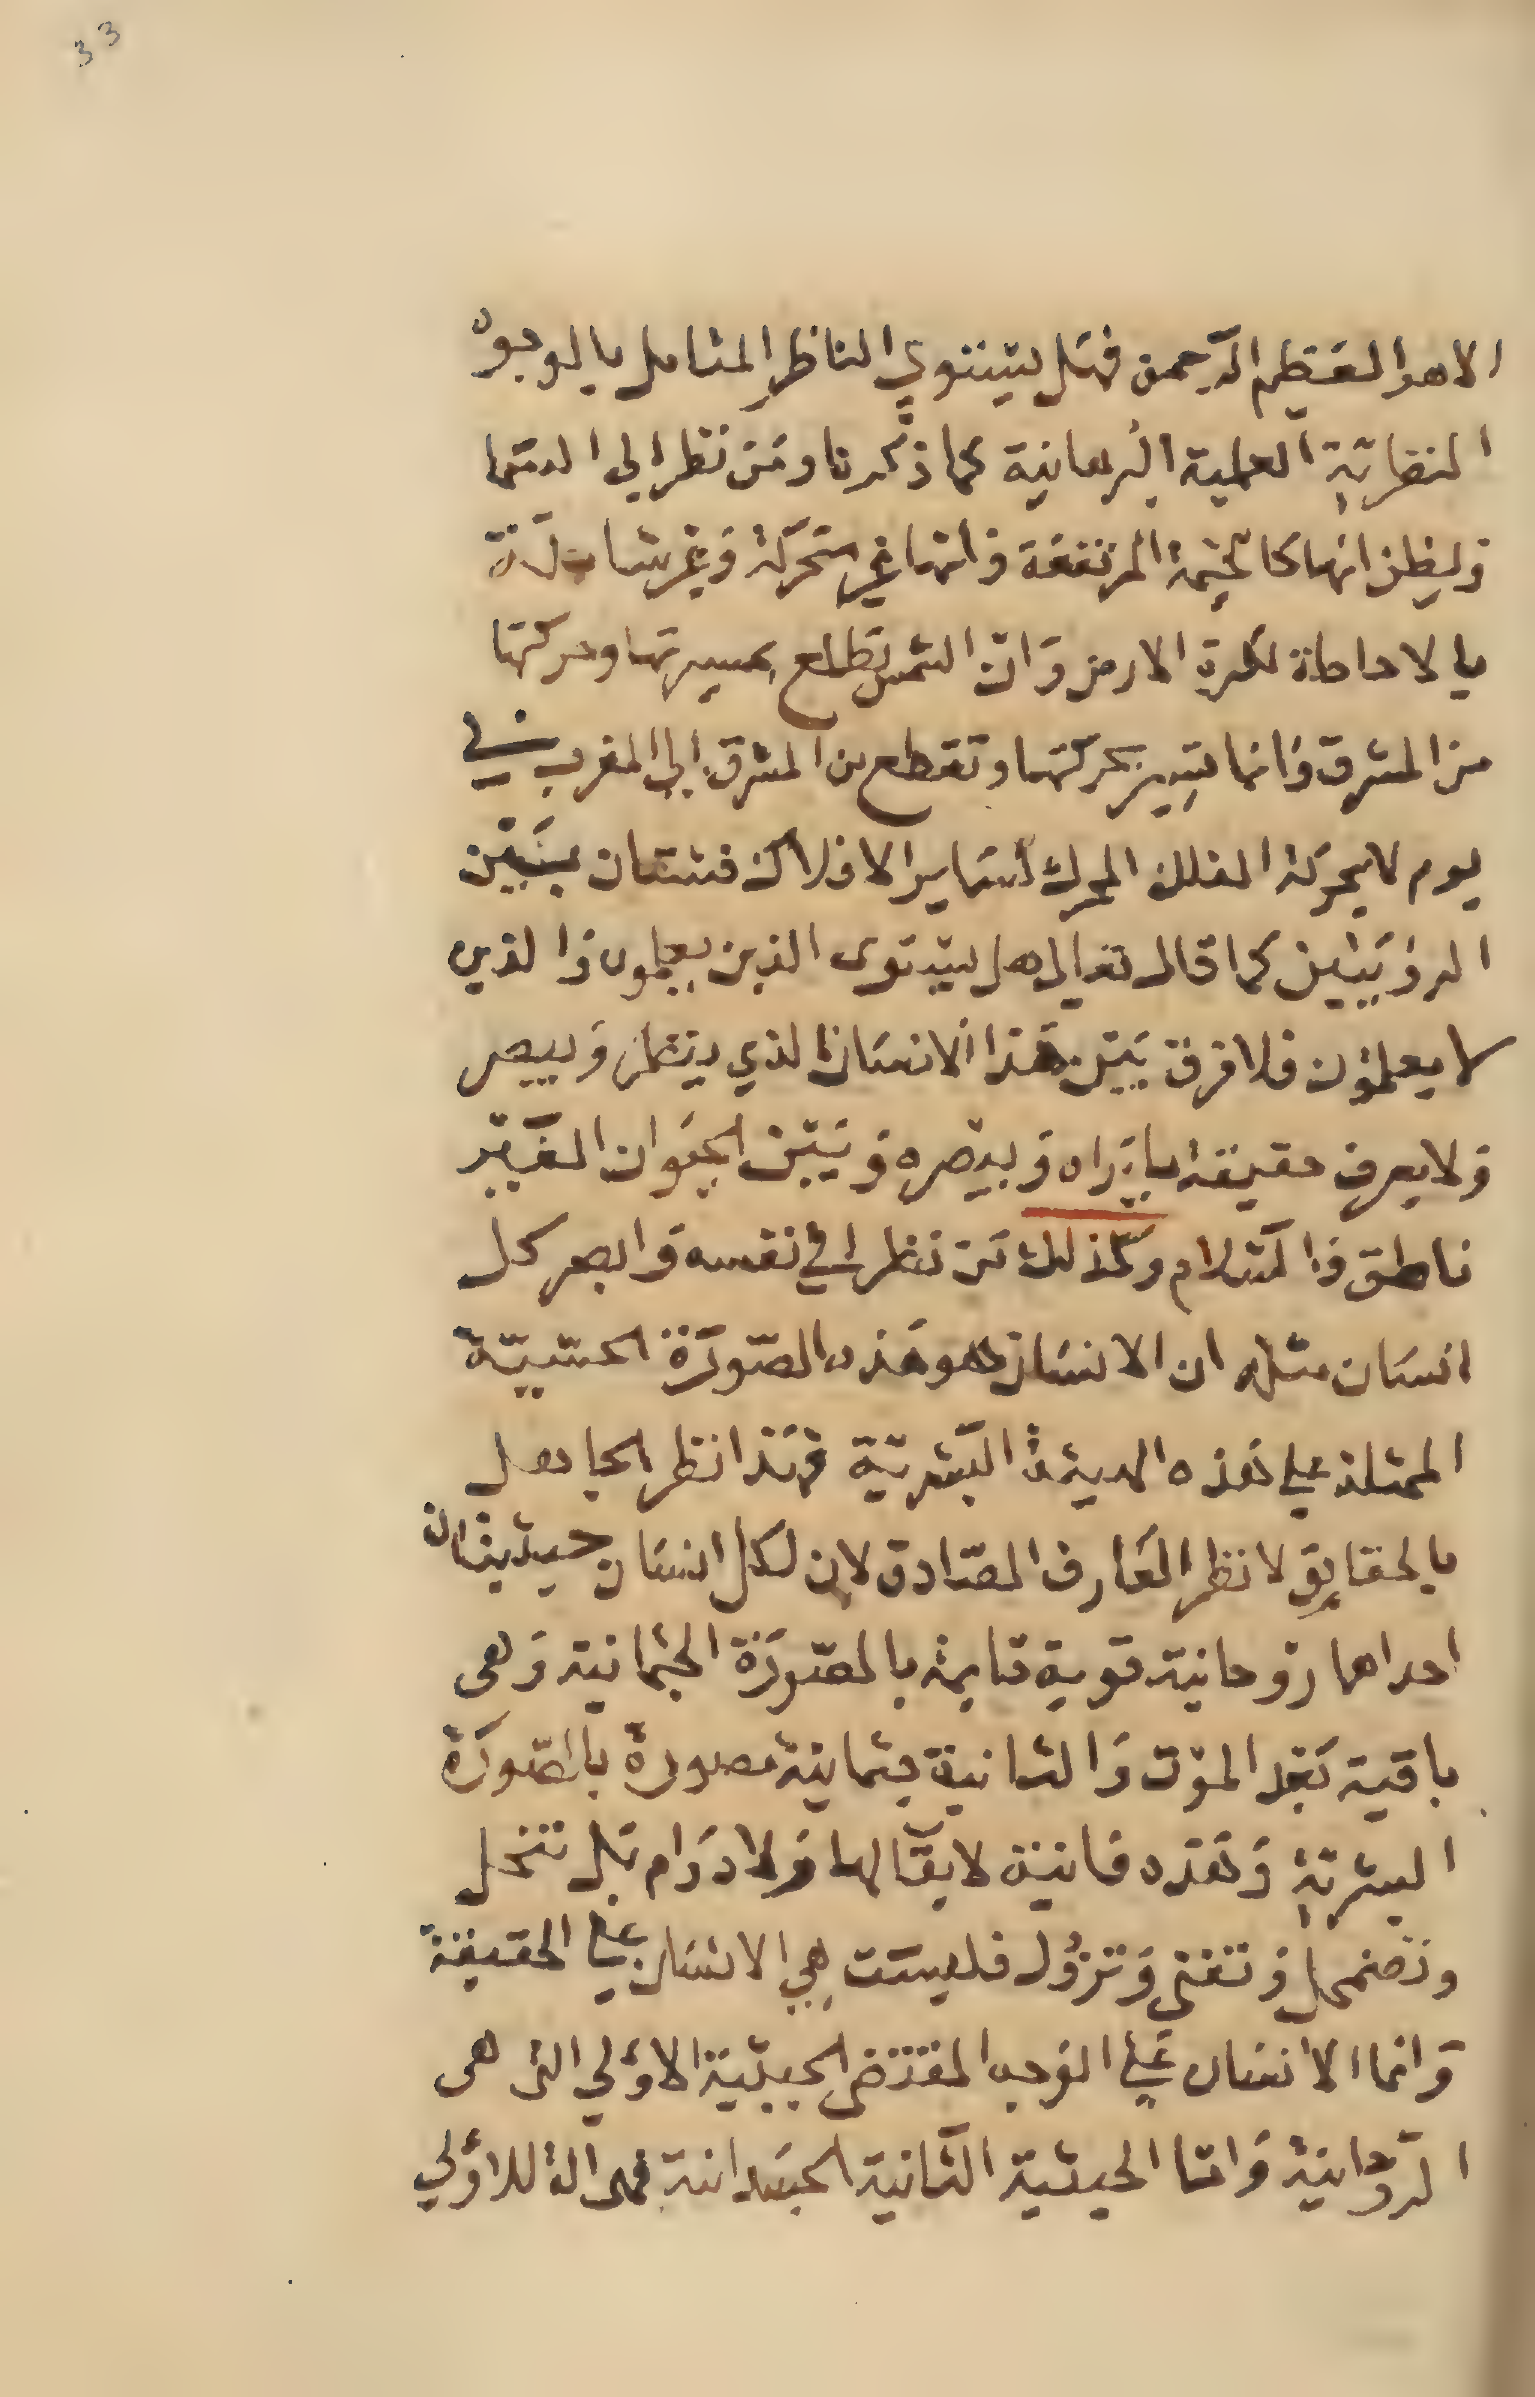 33
الاهو العظيم الرحمن فهل يستوي الناظر المتامل بالوجوه
النظرية العلمية البرهانية كما ذكرنا ومن نظر الى السما
وليظن انها كالخيمة المرتفعة وانها غير متحركة وغير
بالاحاطة لكرة الارض وَان الشمس تطلع بمسيرتها وحركتها
من المشرق وانما تسير بحركتها وتقطع من المشرق الى المغرب في
يوم لا بحركة الفلك المحرك لساير الافلاك فشتان بَيْن
الرؤيتين كما قال تعالى هل يستوى الذين يعلمون والذين
لا يعلمون فلا فرق بين هَذا الانسَان الذي ينظر وَيبصر
وَلا يعرف حقيقة ما يَراه وَيبصره وَبَيْن الحيَوان الغَير
ناطق والسّلام وكذلك مَن نظر الي نفسه وَابصر كل
انسَان مثله ان الانسَان هو هَذه الصّورَة الحسّيّة
الممثلة على هَذه الهيئة البَشريّة فهَذا نظر الجاهل
بالحقايق لا نظر العَارف الصّادق لان لكل انسَان حيثيتان
احداها روحانية قوية قايمة بالصّورَة الجثمانية وَهى
باقية بَعْد الموْت وَالثانية جثمانية مصورة بالصّورَة
البشريّة وَهَذه فانية لا بقَا لها وَلا دوَام بَل تنحل
وتضمحل وَتفنى وَتزوُل فليسَت هي الانسَان على الحقيقة
وَانما الانسَان عَلى الوَجه المقتضى الحيثية الاوْلي التى هى
الرّوحانية وَامّا الحيثية الثّانية الجسَدانية فهى الة للاوْلي